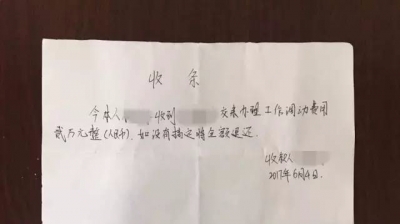 收条
今本人 收到 交来办理工作调动费用
贰万元整(人民币),如没有搞定将全额退还。
收款人
2017年6月4日.